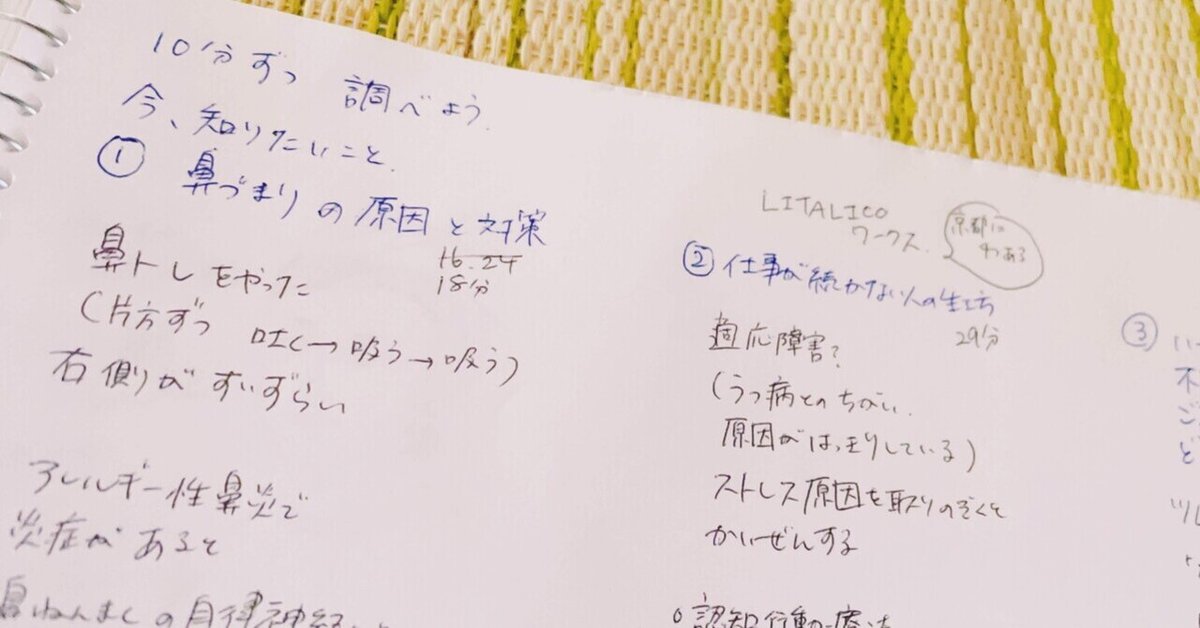 10分ずつ 調べよう.
今、知りたいこと.
① 鼻づまりの原因と対策
16.24
18分
鼻トレをやった
(片方ずつ 吐く→吸う→吸う)
右側がすいずらい
アレルギー性鼻炎で
炎症があると
鼻ねんまくの自律神経
LITALICO
ワークス.
京都に
もある
② 仕事が続かない人の生き方
29分
適応障害?
(うつ病とのちがい.
原因がはっきりしている)
ストレス原因を取りのぞくと
かいぜんする
○認知行動療法
③
不
ご
ど